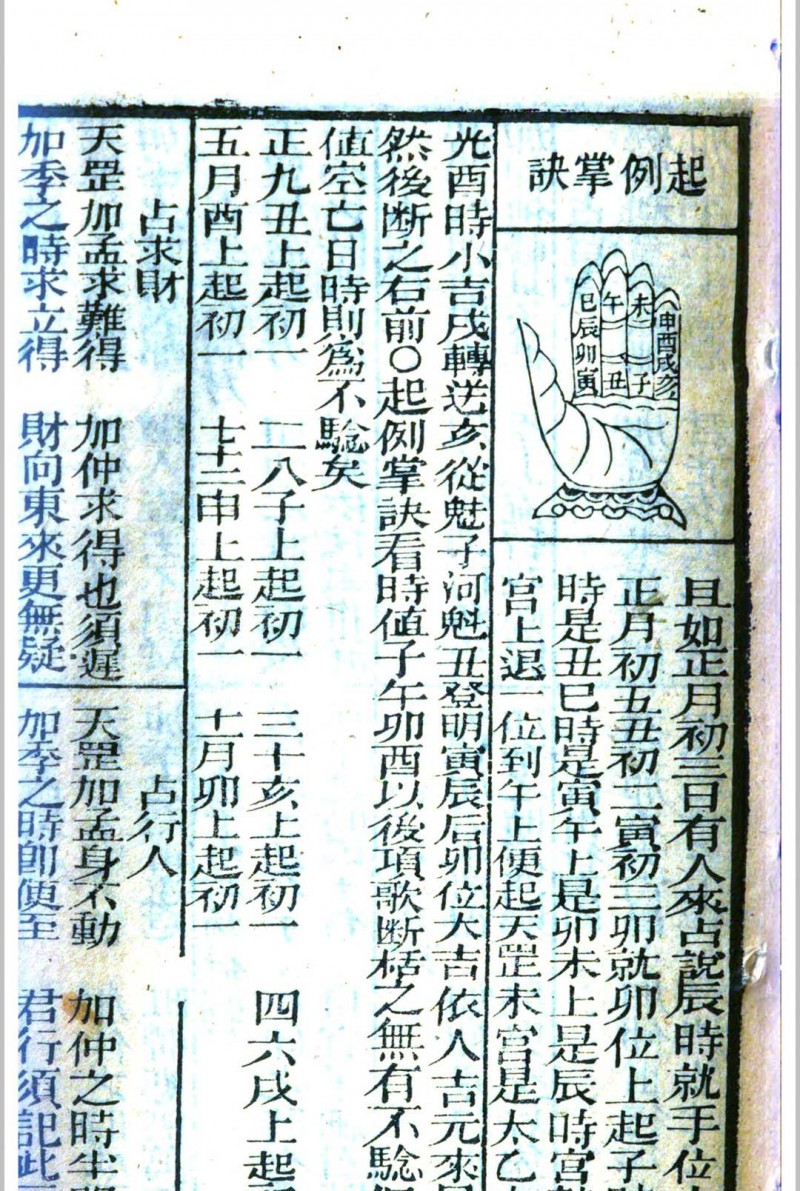 起例掌訣
巳辰卯寅
午丑
未子
申酉戌亥
且如正月初三日有人來占說辰時就手位
正月初五丑初二寅初三卯就卯位上起子時
時是丑巳時是寅午上是卯未上是辰時宮
宮上退一位到午上便起天罡未宮是太乙
光酉時小吉戌轉送亥從魁子河魁丑登明寅辰后卯位大吉依人吉元來
然後斷之右前○起例掌訣看時值子午卯酉以後項歌斷栝之無有不驗
值空亡日時則為不驗矣
正九丑上起初一 二八子上起初一 三十亥上起初一 四六戌上起
五月酉上起初一 七十二申上起初一 十一月卯上起初一
占求財
天罡加孟求難得 加仲求得也須遲
加季之時求立得 財向東來更無疑
占行人
天罡加孟身不動 加仲之時半
加季之時即便至 君行須記此